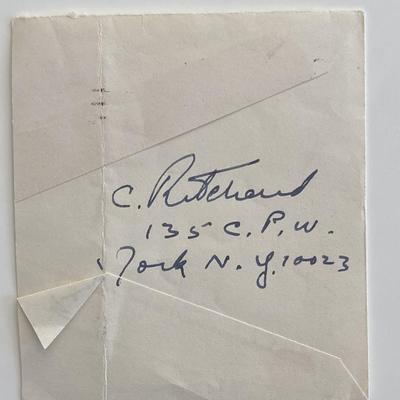 C. Ritchard
135 C. P. W.
York N. Y. 10023